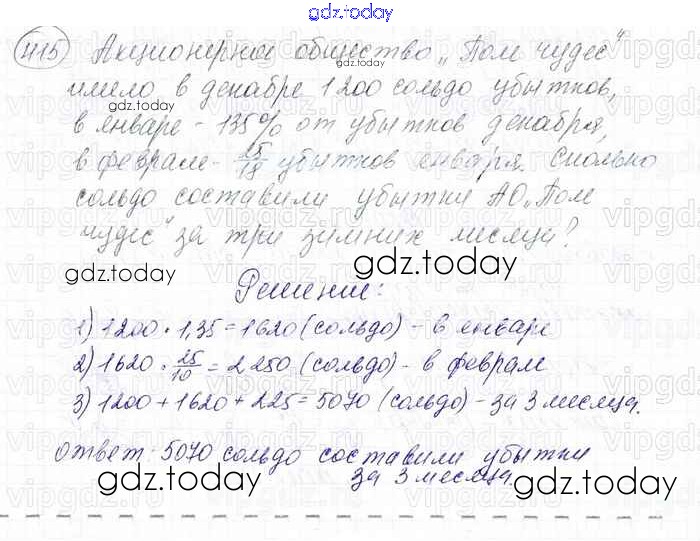 gdz.today
415 Акционерное общество „Пом чудес“
имело в декабре 1200 сольдо убытков,
gdz.today
в январе - 135% от убытков декабря,
в феврале - 25/18 убытков января. Сколько
сольдо составили убытки АО „Пом
чудес“ за три зимних месяца?
gdz.today gdz.today
Решение:
1) 1200 · 1,35 = 1620 (сольдо) - в январе
2) 1620 · 25/10 = 2250 (сольдо) - в феврале
3) 1200 + 1620 + 225 = 5070 (сольдо) - за 3 месяца.
ответ: 5070 сольдо составили убытки
за 3 месяца.
gdz.today gdz.today